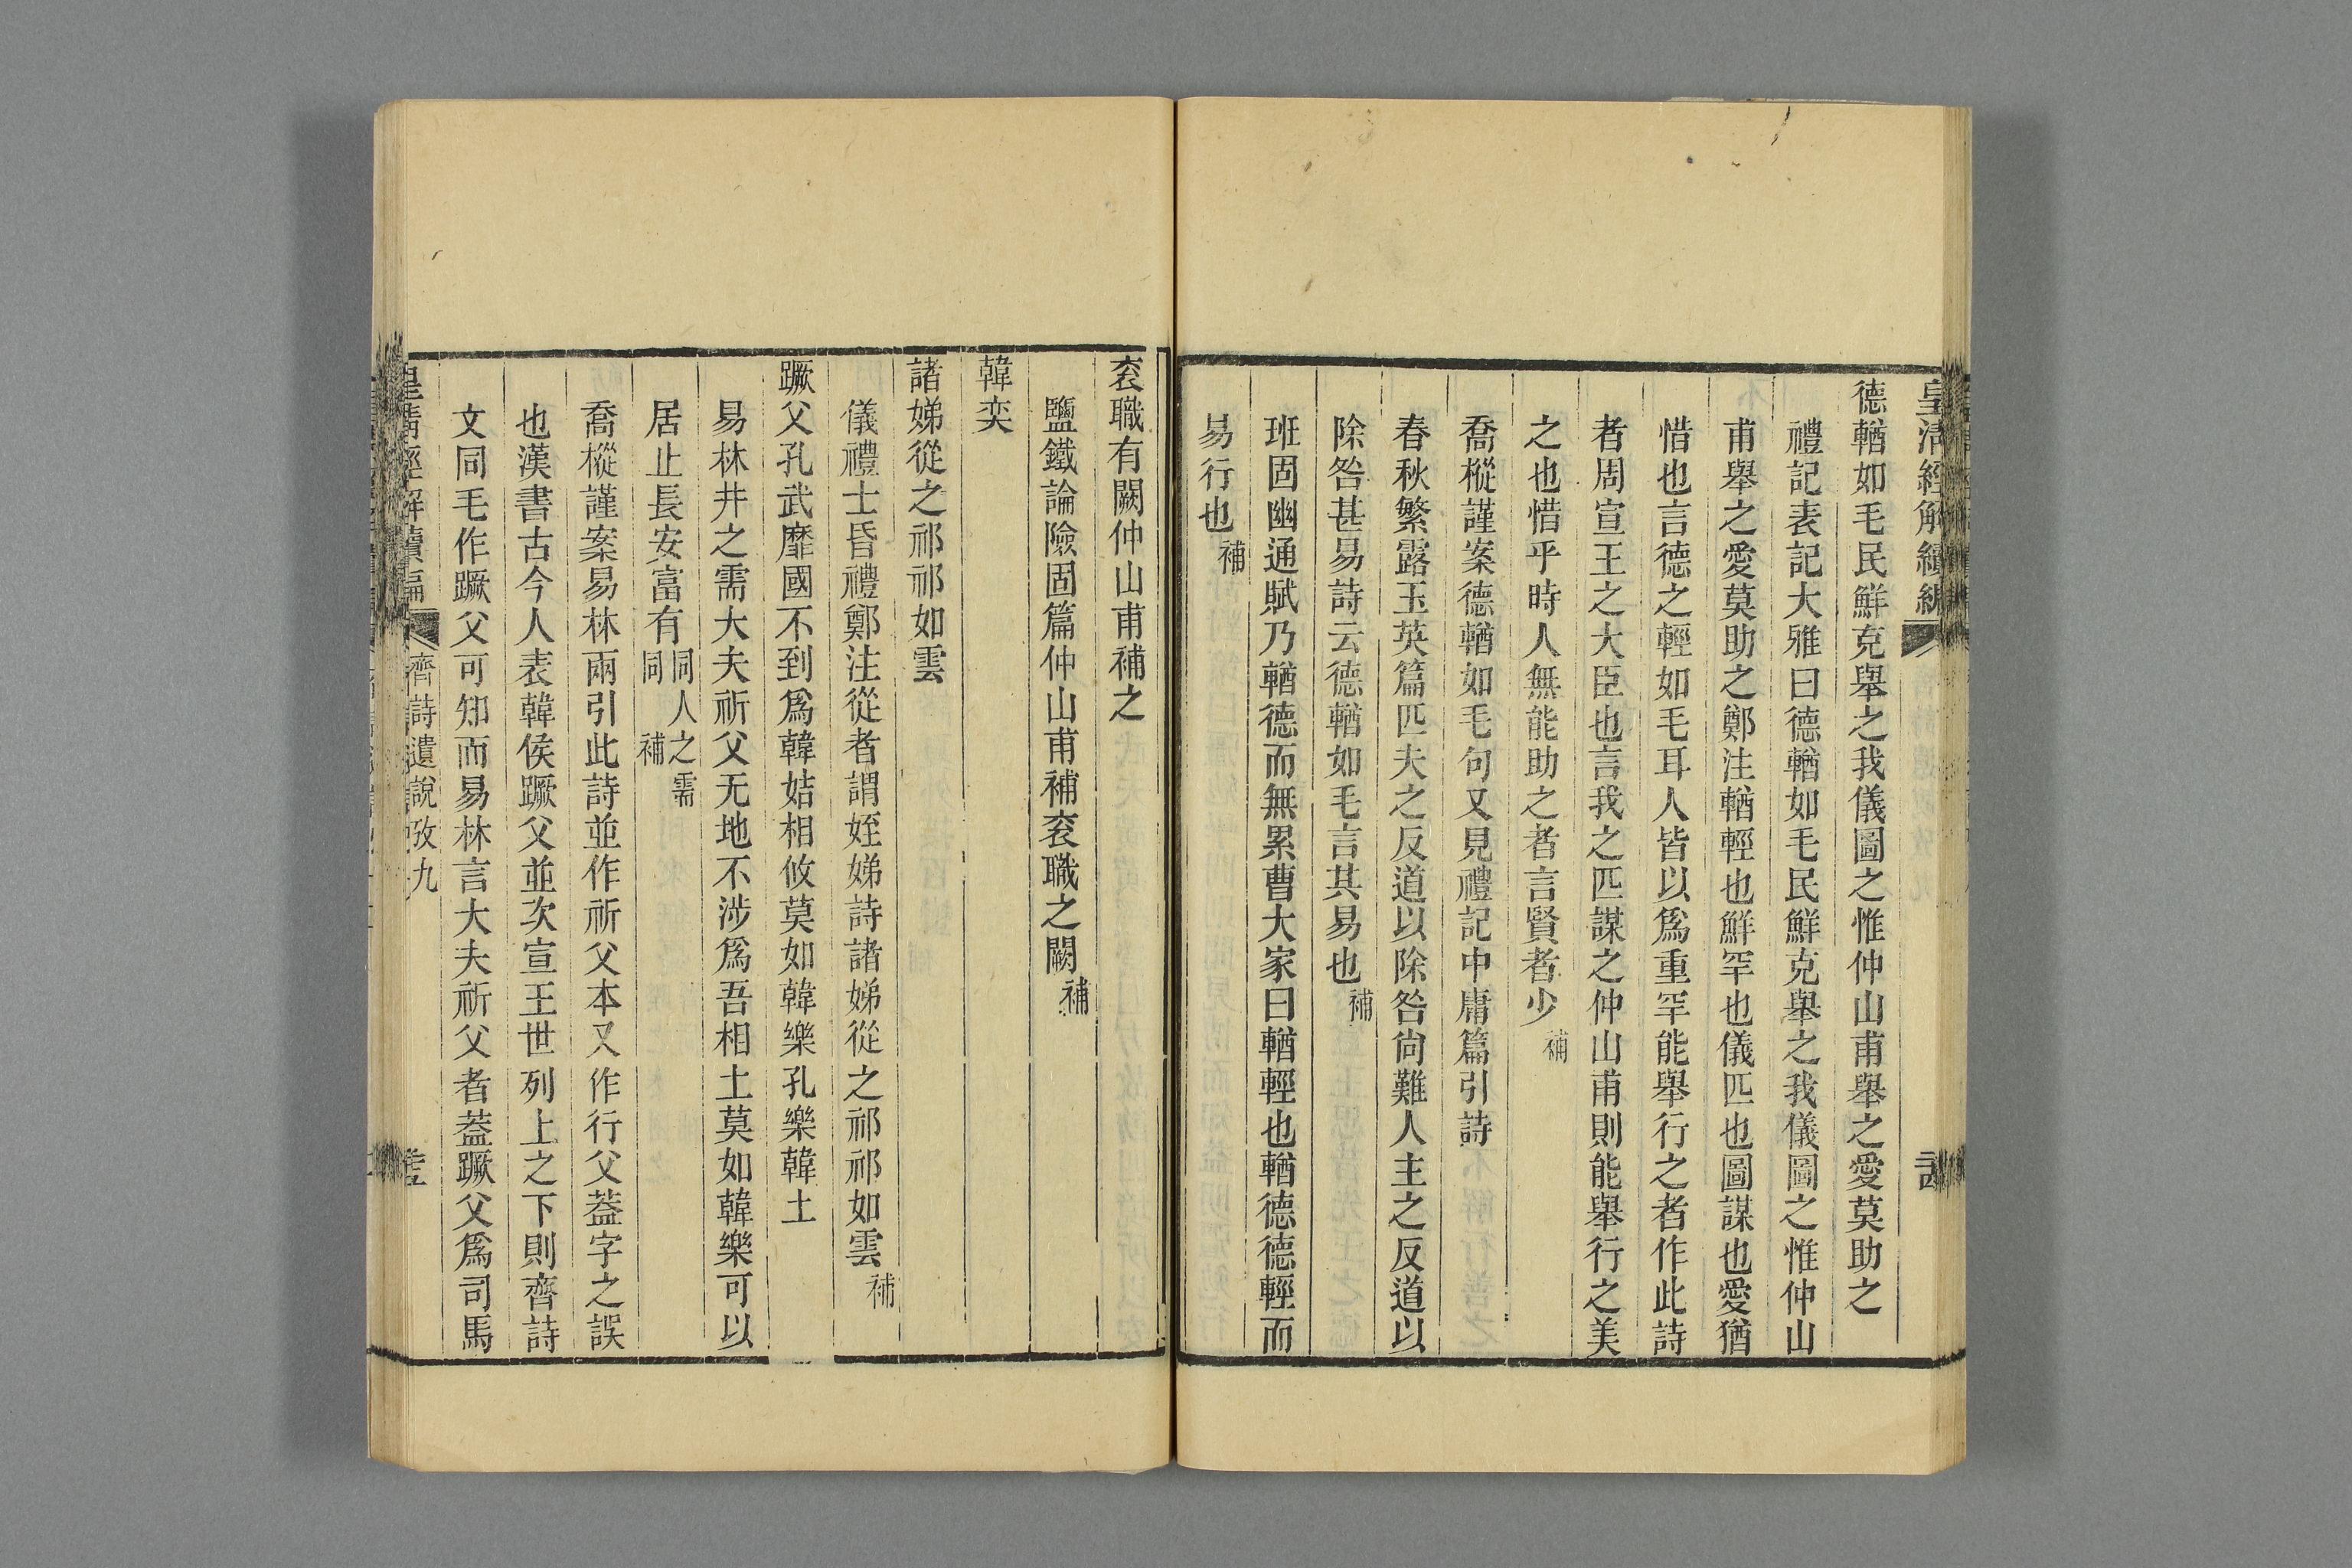 皇清經解續編
德輶如毛民鮮克舉之我儀圖之惟仲山甫舉之愛莫助之
禮記表記大雅曰德輶如毛民鮮克舉之我儀圖之惟仲山
甫舉之愛莫助之鄭注輶輕也鮮罕也儀匹也圖謀也愛猶
惜也言德之輕如毛耳人皆以爲重罕能舉行之者作此詩
者周宣王之大臣也言我之匹謀之仲山甫則能舉行之美
之也惜乎時人無能助之者言賢者少補
喬樅謹案德輶如毛句又見禮記中庸篇引詩
春秋繁露玉英篇匹夫之反道以除咎尚難人主之反道以
除咎甚易詩云德輶如毛言其易也補
班固幽通賦乃輶德而無累曹大家曰輶輕也輶德德輕而
易行也補
衮職有闕仲山甫補之
鹽鐵論險固篇仲山甫補衮職之闕補
韓奕
諸娣從之祁祁如雲
儀禮士昏禮鄭注從者謂姪娣詩諸娣從之祁祁如雲補
蹶父孔武靡國不到爲韓姞相攸莫如韓樂孔樂韓土
易林井之需大夫祈父无地不涉爲吾相土莫如韓樂可以
居止長安富有同人之需同補
喬樅謹案易林兩引此詩並作祈父本又作行父蓋字之誤
也漢書古今人表韓侯蹶父並次宣王世列上之下則齊詩
文同毛作蹶父可知而易林言大夫祈父者蓋蹶父爲司馬
皇清經解續編 齊詩遺說攷九